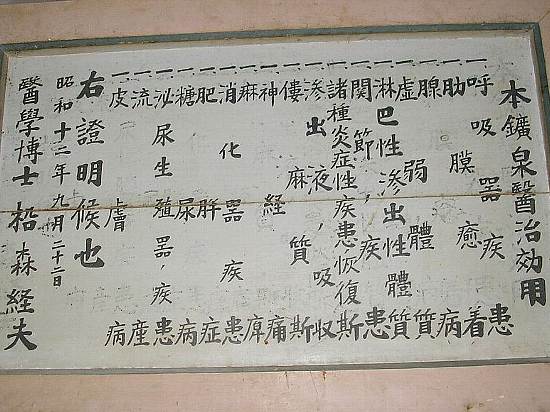 本鑛泉醫治効用
一呼吸器疾患
一肋膜癒着
一腺病
一虚弱體質
一淋巴性滲出性體質
一関節ノ疾患
一諸種炎症性疾患恢復期
一滲出液ノ吸収
一僂麻質斯
一神経痛
一麻痺
一消化器疾患
一肥胖症
一糖尿病
一泌尿生殖器ノ疾患
一流産
一皮膚病
右證明候也
昭和十二年九月二十二日
醫學博士 松森経夫